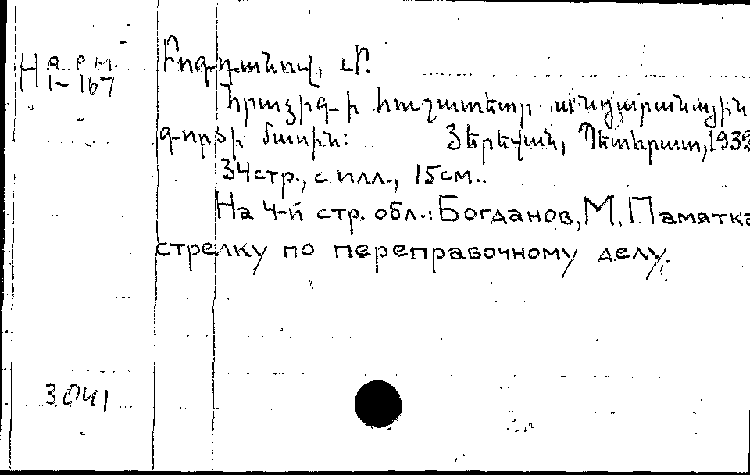 На арм.
1-167
Բոգդանով, Մ.
Հրաձիգ-ի հուշատետր անցարանային
գործի մասին: Յերեվան, Պետհրատ, 1932
34стр., с илл., 15см..
На 4-й стр. обл.: Богданов, М. Памятка
стрелку по переправочному делу.
3041